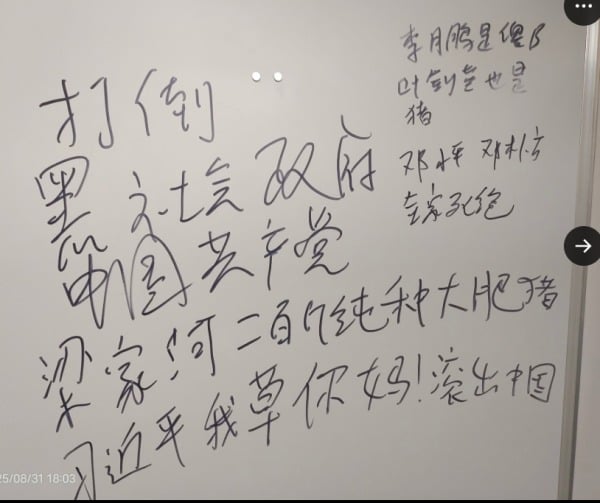 打倒
黑社会政府
中国共产党
梁家河二百斤纯种大肥猪
习近平我草你妈！滚出中国
李月鹏是傻B
叶剑英也是
猪
邓小平 邓朴方
全家死绝
25/08/31 18:03